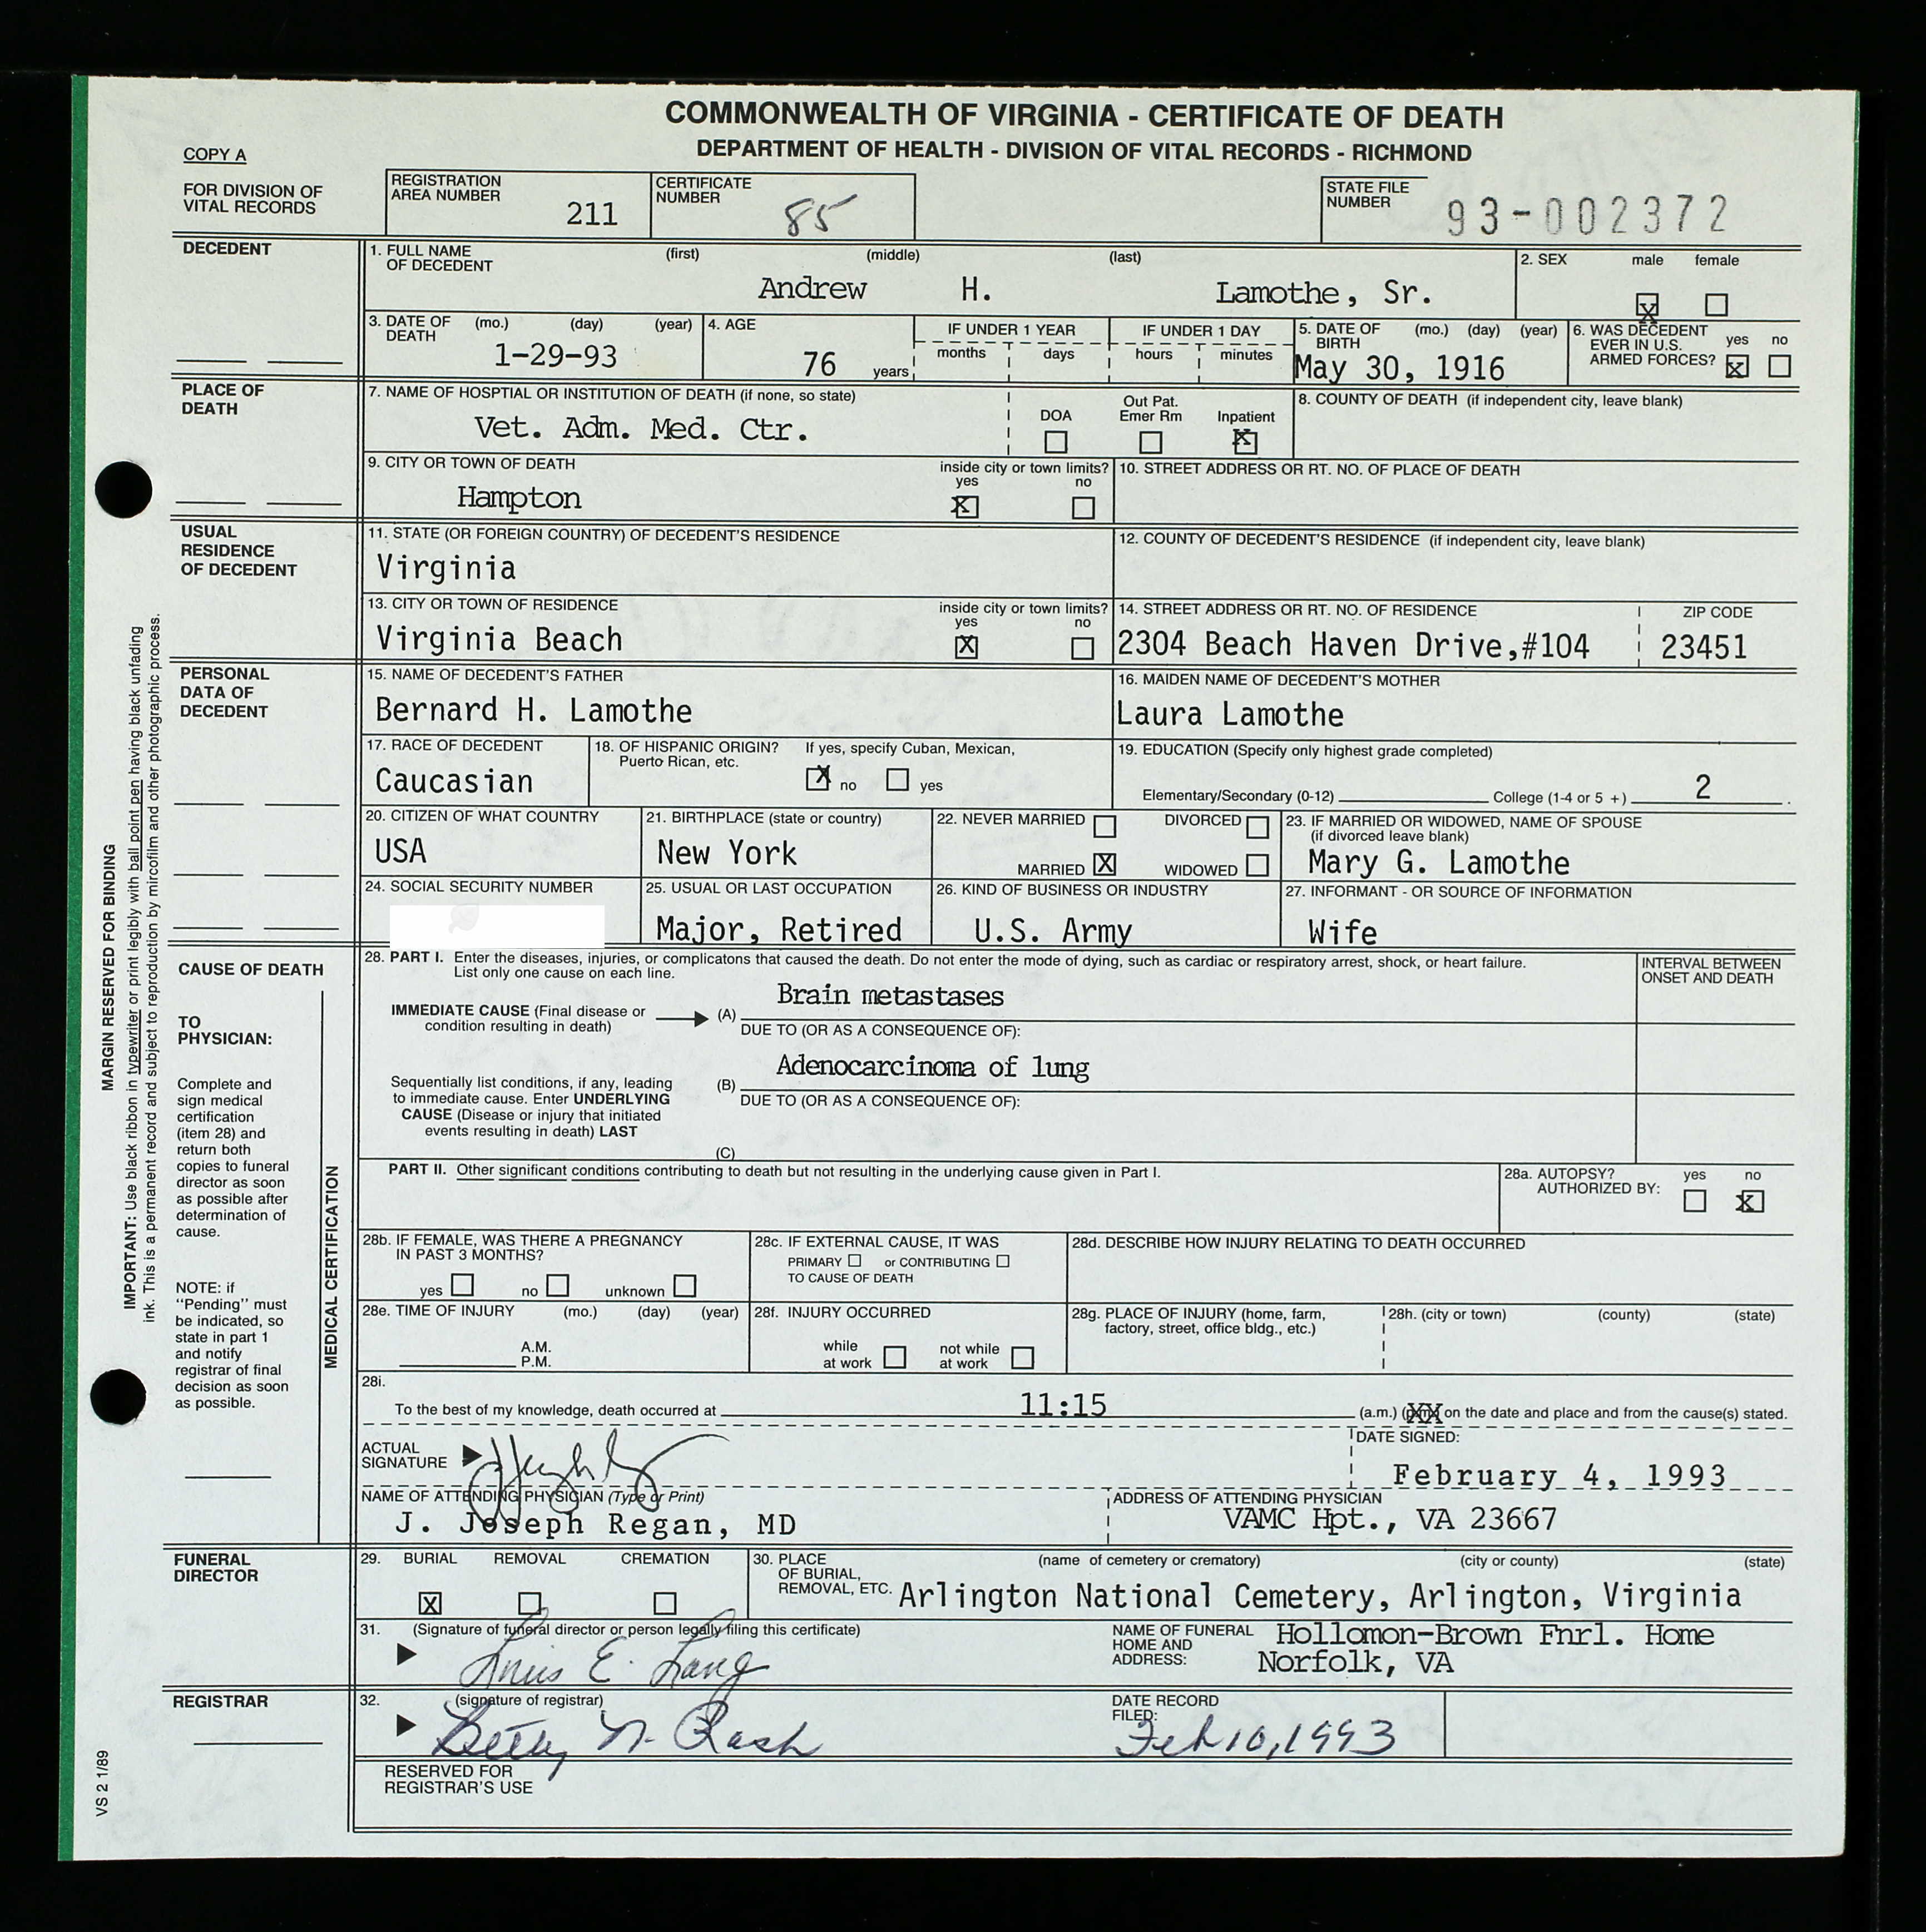 COMMONWEALTH OF VIRGINIA - CERTIFICATE OF DEATH
DEPARTMENT OF HEALTH - DIVISION OF VITAL RECORDS - RICHMOND
COPY A
FOR DIVISION OF
VITAL RECORDS
REGISTRATION
AREA NUMBER 211
CERTIFICATE
NUMBER 85
STATE FILE
NUMBER 93-002372
DECEDENT
1. FULL NAME (first) (middle) (last)
OF DECEDENT
Andrew H. Lamothe, Sr.
2. SEX male female
X
3. DATE OF (mo.) (day) (year)
DEATH
1-29-93
4. AGE
76 years
IF UNDER 1 YEAR
months days
IF UNDER 1 DAY
hours minutes
5. DATE OF (mo.) (day) (year)
BIRTH
May 30, 1916
6. WAS DECEDENT
EVER IN U.S. yes no
ARMED FORCES? X
PLACE OF
DEATH
7. NAME OF HOSPTIAL OR INSTITUTION OF DEATH (if none, so state)
Vet. Adm. Med. Ctr.
DOA
Out Pat.
Emer Rm
Inpatient
X
8. COUNTY OF DEATH (if independent city, leave blank)
9. CITY OR TOWN OF DEATH
Hampton
inside city or town limits?
yes no
X
10. STREET ADDRESS OR RT. NO. OF PLACE OF DEATH
USUAL
RESIDENCE
OF DECEDENT
11. STATE (OR FOREIGN COUNTRY) OF DECEDENT'S RESIDENCE
Virginia
12. COUNTY OF DECEDENT'S RESIDENCE (if independent city, leave blank)
13. CITY OR TOWN OF RESIDENCE
Virginia Beach
inside city or town limits?
yes no
X
14. STREET ADDRESS OR RT. NO. OF RESIDENCE
2304 Beach Haven Drive,#104
ZIP CODE
23451
PERSONAL
DATA OF
DECEDENT
15. NAME OF DECEDENT'S FATHER
Bernard H. Lamothe
16. MAIDEN NAME OF DECEDENT'S MOTHER
Laura Lamothe
17. RACE OF DECEDENT
Caucasian
18. OF HISPANIC ORIGIN? If yes, specify Cuban, Mexican,
Puerto Rican, etc.
X no yes
19. EDUCATION (Specify only highest grade completed)
Elementary/Secondary (0-12) College (1-4 or 5 +) 2
20. CITIZEN OF WHAT COUNTRY
USA
21. BIRTHPLACE (state or country)
New York
22. NEVER MARRIED DIVORCED
MARRIED X WIDOWED
23. IF MARRIED OR WIDOWED, NAME OF SPOUSE
(if divorced leave blank)
Mary G. Lamothe
24. SOCIAL SECURITY NUMBER
25. USUAL OR LAST OCCUPATION
Major, Retired
26. KIND OF BUSINESS OR INDUSTRY
U.S. Army
27. INFORMANT - OR SOURCE OF INFORMATION
Wife
CAUSE OF DEATH
TO
PHYSICIAN:
Complete and
sign medical
certification
(item 28) and
return both
copies to funeral
director as soon
as possible after
determination of
cause.
NOTE: if
"Pending" must
be indicated, so
state in part 1
and notify
registrar of final
decision as soon
as possible.
MEDICAL CERTIFICATION
28. PART I. Enter the diseases, injuries, or complicatons that caused the death. Do not enter the mode of dying, such as cardiac or respiratory arrest, shock, or heart failure.
List only one cause on each line.
INTERVAL BETWEEN
ONSET AND DEATH
IMMEDIATE CAUSE (Final disease or
condition resulting in death)
(A) Brain metastases
DUE TO (OR AS A CONSEQUENCE OF):
Sequentially list conditions, if any, leading
to immediate cause. Enter UNDERLYING
CAUSE (Disease or injury that initiated
events resulting in death) LAST
(B) Adenocarcinoma of lung
DUE TO (OR AS A CONSEQUENCE OF):
(C)
PART II. Other significant conditions contributing to death but not resulting in the underlying cause given in Part I.
28a. AUTOPSY? yes no
AUTHORIZED BY: X
28b. IF FEMALE, WAS THERE A PREGNANCY
IN PAST 3 MONTHS?
yes no unknown
28c. IF EXTERNAL CAUSE, IT WAS
PRIMARY or CONTRIBUTING
TO CAUSE OF DEATH
28d. DESCRIBE HOW INJURY RELATING TO DEATH OCCURRED
28e. TIME OF INJURY (mo.) (day) (year)
A.M.
P.M.
28f. INJURY OCCURRED
while
at work
not while
at work
28g. PLACE OF INJURY (home, farm,
factory, street, office bldg., etc.)
28h. (city or town) (county) (state)
28i.
To the best of my knowledge, death occurred at 11:15 (a.m.) XX on the date and place and from the cause(s) stated.
ACTUAL
SIGNATURE
DATE SIGNED:
February 4, 1993
NAME OF ATTENDING PHYSICIAN (Type or Print)
J. Joseph Regan, MD
ADDRESS OF ATTENDING PHYSICIAN
VAMC Hpt., VA 23667
FUNERAL
DIRECTOR
29. BURIAL REMOVAL CREMATION
X
30. PLACE (name of cemetery or crematory) (city or county) (state)
OF BURIAL,
REMOVAL, ETC. Arlington National Cemetery, Arlington, Virginia
31. (Signature of funeral director or person legally filing this certificate)
E. Lang
NAME OF FUNERAL
HOME AND
ADDRESS:
Hollomon-Brown Fnrl. Home
Norfolk, VA
REGISTRAR
32. (signature of registrar)
Betty N. Rash
DATE RECORD
FILED:
Feb 10, 1993
RESERVED FOR
REGISTRAR'S USE
MARGIN RESERVED FOR BINDING
IMPORTANT: Use black ribbon in typewriter or print legibly with ball point pen having black unfading
ink. This is a permanent record and subject to reproduction by mircofilm and other photographic process.
VS 2 1/89